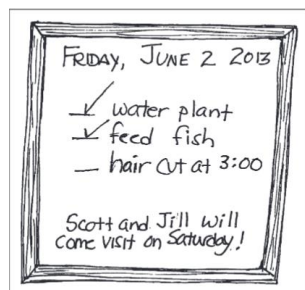 FRIDAY, JUNE 2 2013
water plant
feed fish
hair cut at 3:00
Scott and Jill will
come visit on Saturday!